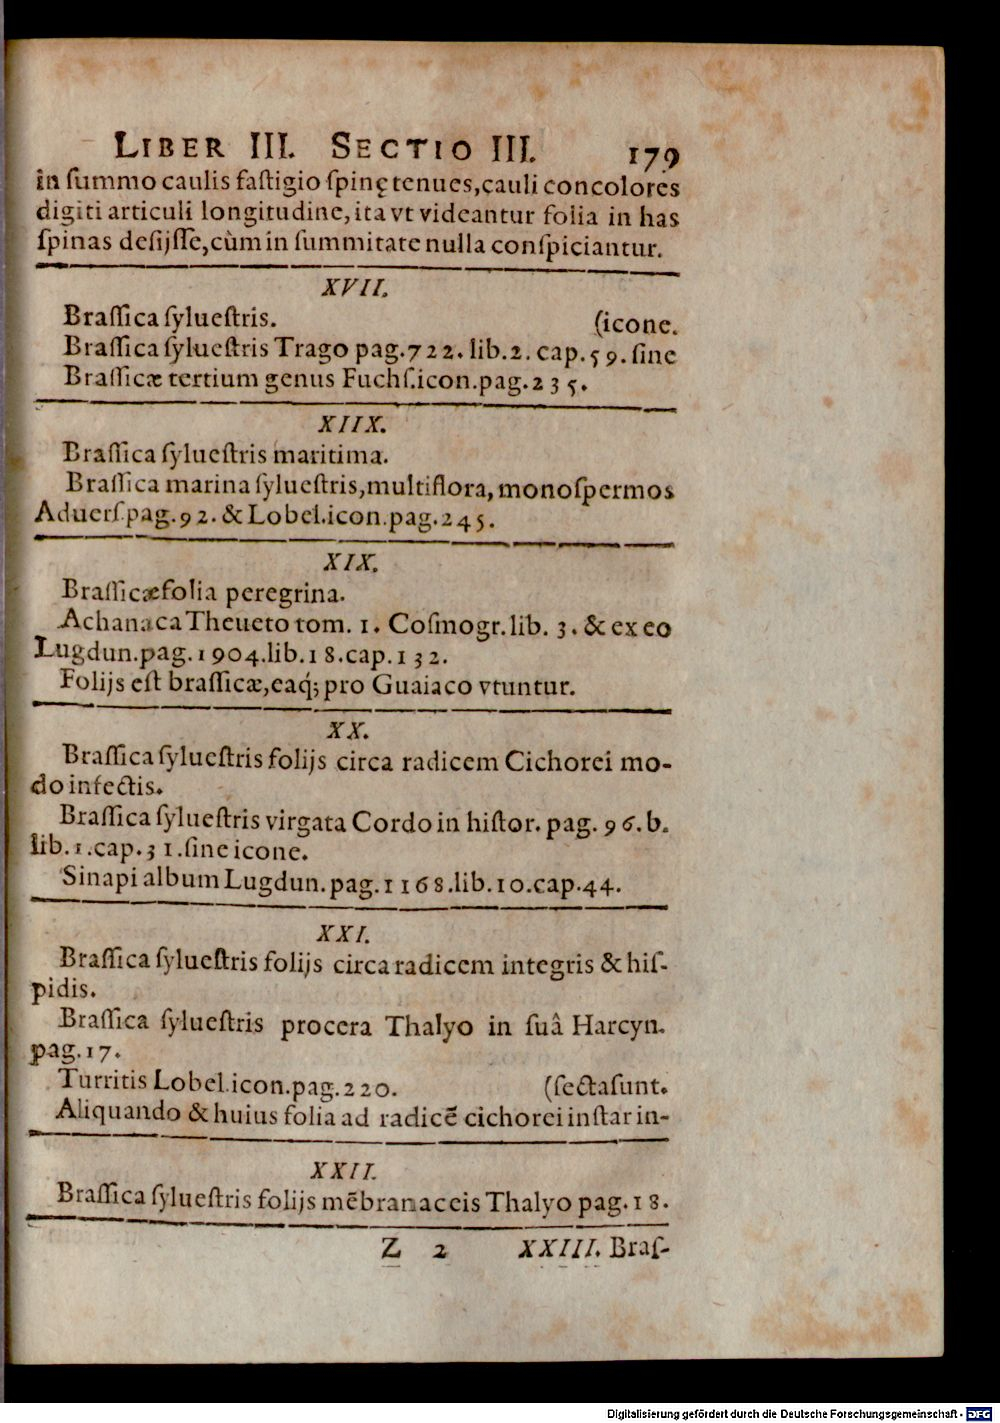 LIBER III. SECTIO III. 179
in ſummo caulis faſtigio ſpinę tenues, cauli concolores
digiti articuli longitudine, ita vt videantur folia in has
ſpinas deſijſſe, cùm in ſummitate nulla conſpiciantur.
XVII.
Braſſica ſylueſtris. (icone.
Braſſica ſylueſtris Trago pag. 722. lib. 2. cap. 59. ſine
Braſſicæ tertium genus Fuchſ. icon. pag. 235.
XIIX.
Braſſica ſylueſtris maritima.
Braſſica marina ſylueſtris, multiflora, monoſpermos
Aduerſ. pag. 92. & Lobel. icon. pag. 245.
XIX.
Braſſicæfolia peregrina.
Achanaca Theueto tom. 1. Coſmogr. lib. 3. & ex eo
Lugdun. pag. 1904. lib. 18. cap. 132.
Folijs eſt braſſicæ, eaq́; pro Guaiaco vtuntur.
XX.
Braſſica ſylueſtris folijs circa radicem Cichorei mo-
do inſectis.
Braſſica ſylueſtris virgata Cordo in hiſtor. pag. 96. b.
lib. 1. cap. 31. ſine icone.
Sinapi album Lugdun. pag. 1168. lib. 10. cap. 44.
XXI.
Braſſica ſylueſtris folijs circa radicem integris & hiſ-
pidis.
Braſſica ſylueſtris procera Thalyo in ſuâ Harcyn.
pag. 17.
Turritis Lobel. icon. pag. 220. (ſecta ſunt.
Aliquando & huius folia ad radicē cichorei inſtar in-
XXII.
Braſſica ſylueſtris folijs mēbranaceis Thalyo pag. 18.
Z 2 XXIII. Braſ-
Digitalisierung gefördert durch die Deutsche Forschungsgemeinschaft - DFG